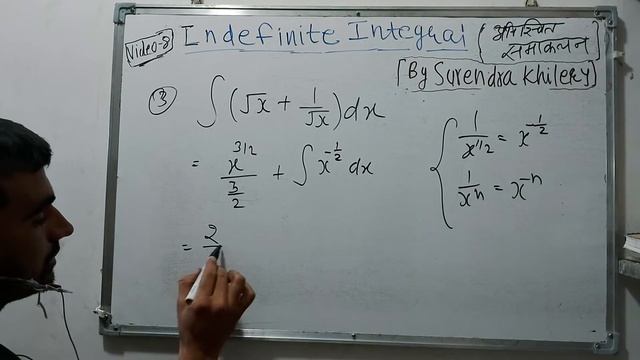 Video-8
Indefinite Integral
(अनिश्चित
समाकलन)
[By Surendra Khilery]
③ ∫(√x + 1/√x)dx
= x^{3/2}/(3/2) + ∫x^{-1/2} dx
= 2/
1/x^{1/2} = x^{-1/2}
1/x^n = x^{-n}